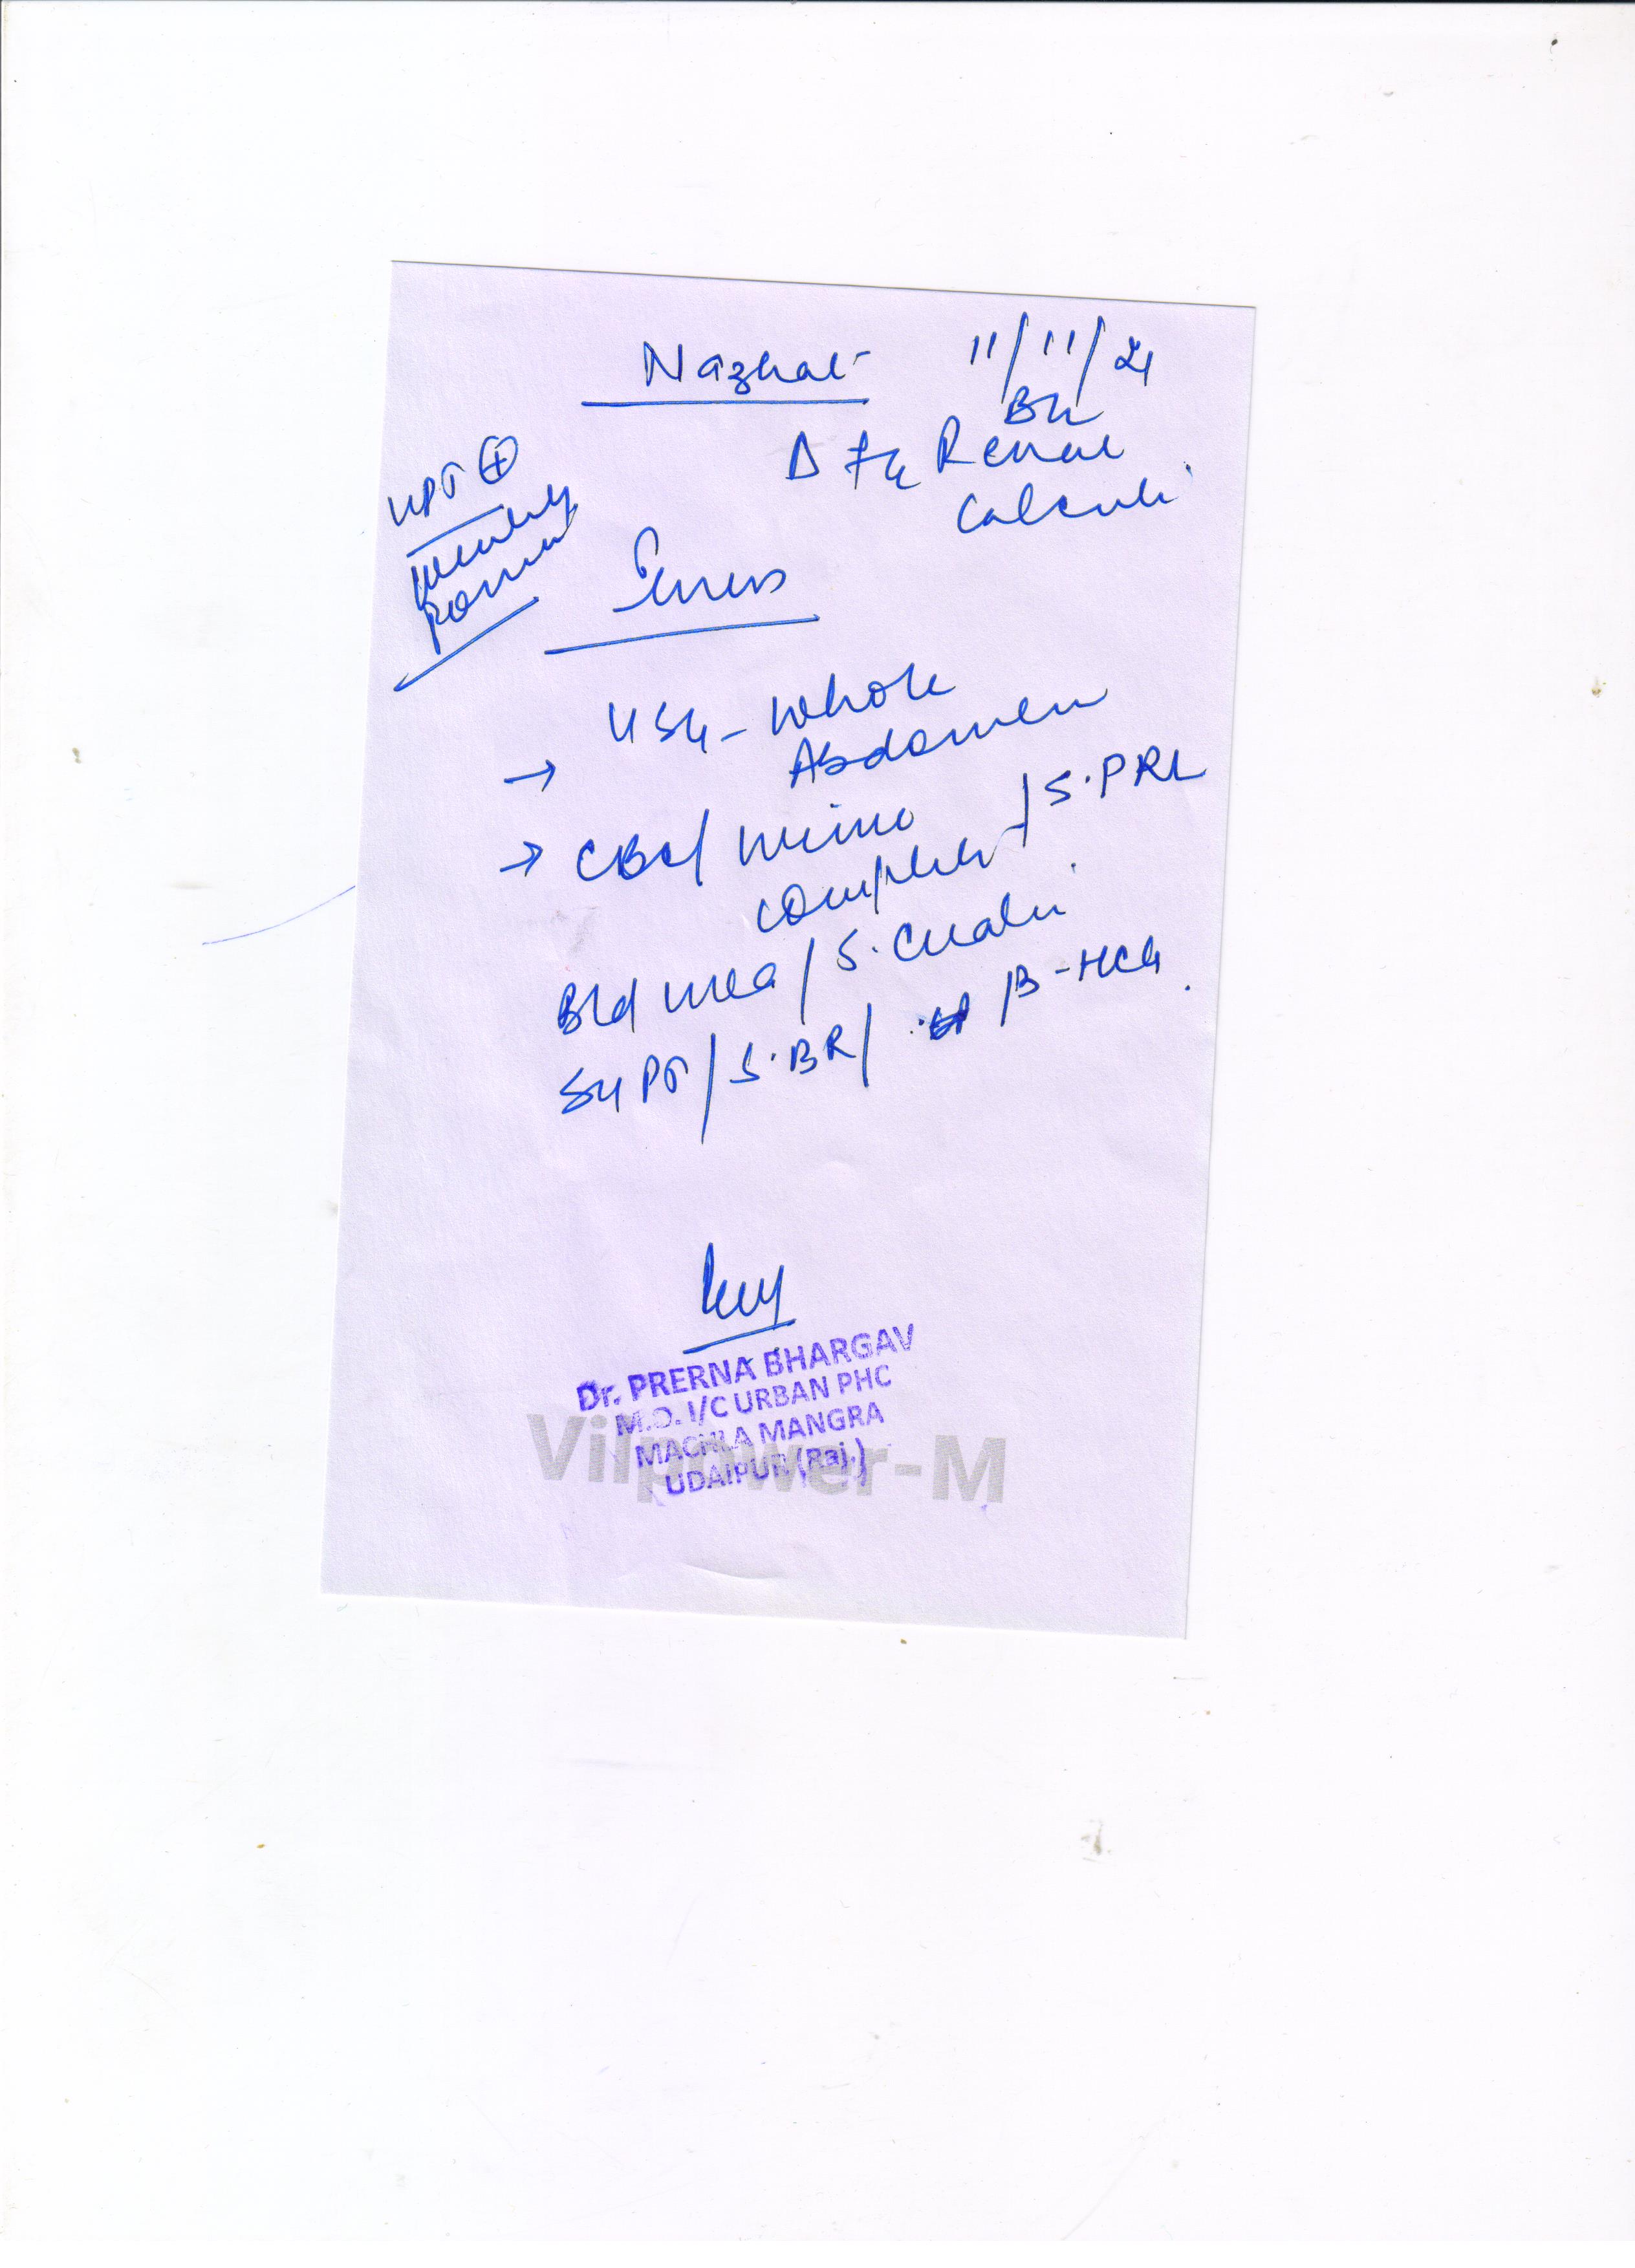 Nazhat 11/11/21
B/L
Δ F/c Renal
Calculi
UPT ⊕
weakly
positive
Invers
→ USG - Whole
Abdomen
→ CBC / Urine
complete / S.PRL
Bld urea / S. Creatin
SGPT / S.BR / B-HCG
Dr. PRERNA BHARGAV
M.O. I/C URBAN PHC
MACHLA MANGRA
UDAIPUR (Raj.)
Vilpower-M